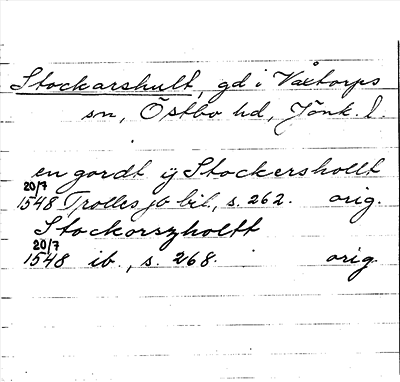 Stockarshult, gd i Våxtorps
sn, Östbo hd, Jönk. l.
en gordt ÿ Stockershollt
20/7
1548 Trolles jb bil, s. 262. orig.
Stockorszholtt
20/7
1548 ib., s. 268. orig.